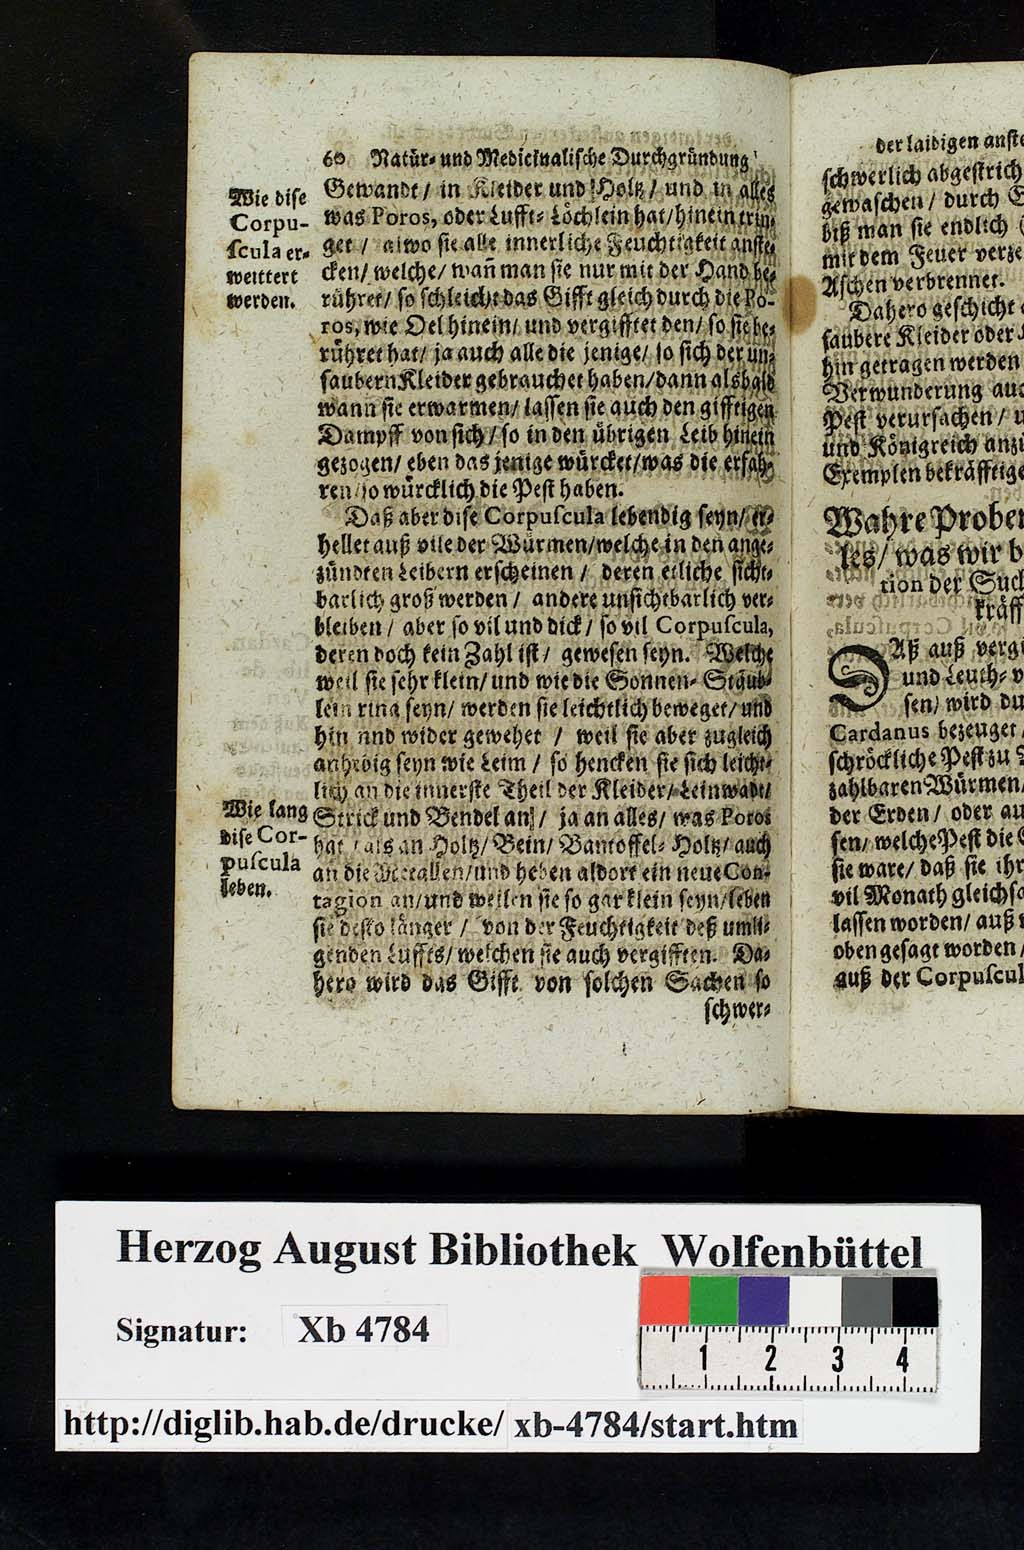 60 Natür- und Medicinalische Durchgründung
Wie dise
Corpu-
ſcula er-
weittert
werden.
Gewandt / in Kleider und Holtz / und in alles
was Poros, oder Lufft- Löchlein hat / hinein trin-
get / alwo sie alle innerliche Feuchtigkeit anste-
cken / welche / wañ man sie nur mit der Hand be-
rühret / so schleicht das Gifft gleich durch die Po-
ros, wie Oel hinein / und vergifftet den / so sie be-
rühret hat / ja auch alle die jenige / so sich der un-
saubern Kleider gebrauchet haben / dann alsbald
wann sie erwarmen / lassen sie auch den gifftigen
Dampff von sich / so in den übrigen Leib hinein
gezogen / eben das jenige würcket / was die erfah-
ren / so würcklich die Pest haben.
Daß aber dise Corpuſcula lebendig seyn / er-
hellet auß vile der Würmen / welche in den ange-
zündten Leibern erscheinen / deren etliche sicht-
barlich groß werden / andere unsichtbarlich ver-
bleiben / aber so vil und dick / so vil Corpuſcula,
deren doch kein Zahl ist / gewesen seyn. Welche
weil sie sehr klein / und wie die Sonnen- Stäub-
lein ring seyn / werden sie leichtlich beweget / und
hin und wider gewehet / weil sie aber zugleich
anhebig seyn wie Leim / so hencken sie sich leicht-
lich an die innerste Theil der Kleider / Leinwadt /
Wie lang
dise Cor-
puſcula
leben.
Strick und Bendel an / ja an alles / was Poros
hat / als an Holtz / Bein / Pantoffel- Holtz / auch
an die Metallen / und heben aldort ein neue Con-
tagion an / und weilen sie so gar klein seyn / leben
sie desto länger / von der Feuchtigkeit deß umli-
genden Luffts / welchen sie auch vergifften. Da-
hero wird das Gifft von solchen Sachen so
schwer-
der laidigen anste
schwerlich abgestrich
gewaschen / durch
biß man sie endlich
mit dem Feuer verze
Aschen verbrennet.
Dahero geschicht
saubere Kleider oder
hin getragen werden
Verwunderung auc
Pest verursachen / u
und Königreich anzü
Exemplen bekräfftige
Wahre Proben
les / was wir b
tion der Such
kräff
DAß auß vergi
und Leuth- v
sen / wird du
Cardanus bezeuget /
schröckliche Pest zu
zahlbaren Würmen /
der Erden / oder au
sen / welche Pest die
sie ware / daß sie ihr
vil Monath gleichsa
lassen worden / auß
oben gesagt worden /
auß der Corpuſcul
Herzog August Bibliothek Wolfenbüttel
Signatur: Xb 4784
1 2 3 4
http://diglib.hab.de/drucke/ xb-4784/start.htm